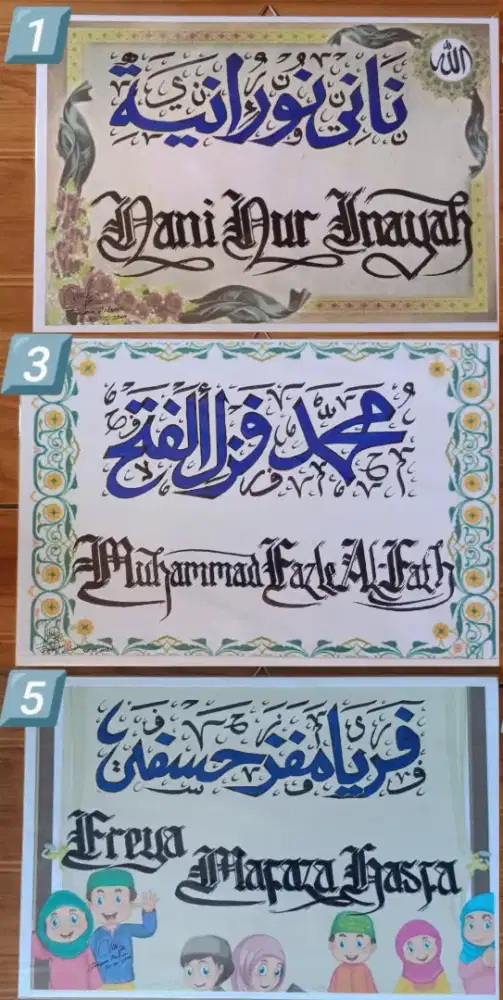 1
ناني نورانية
الله
Nani Nur Inayah
3
محمد فزل ألفتح
Muhammad Fazle Al-Fath
5
فريا مفز حسفى
Freya
Mafaza Hasfa